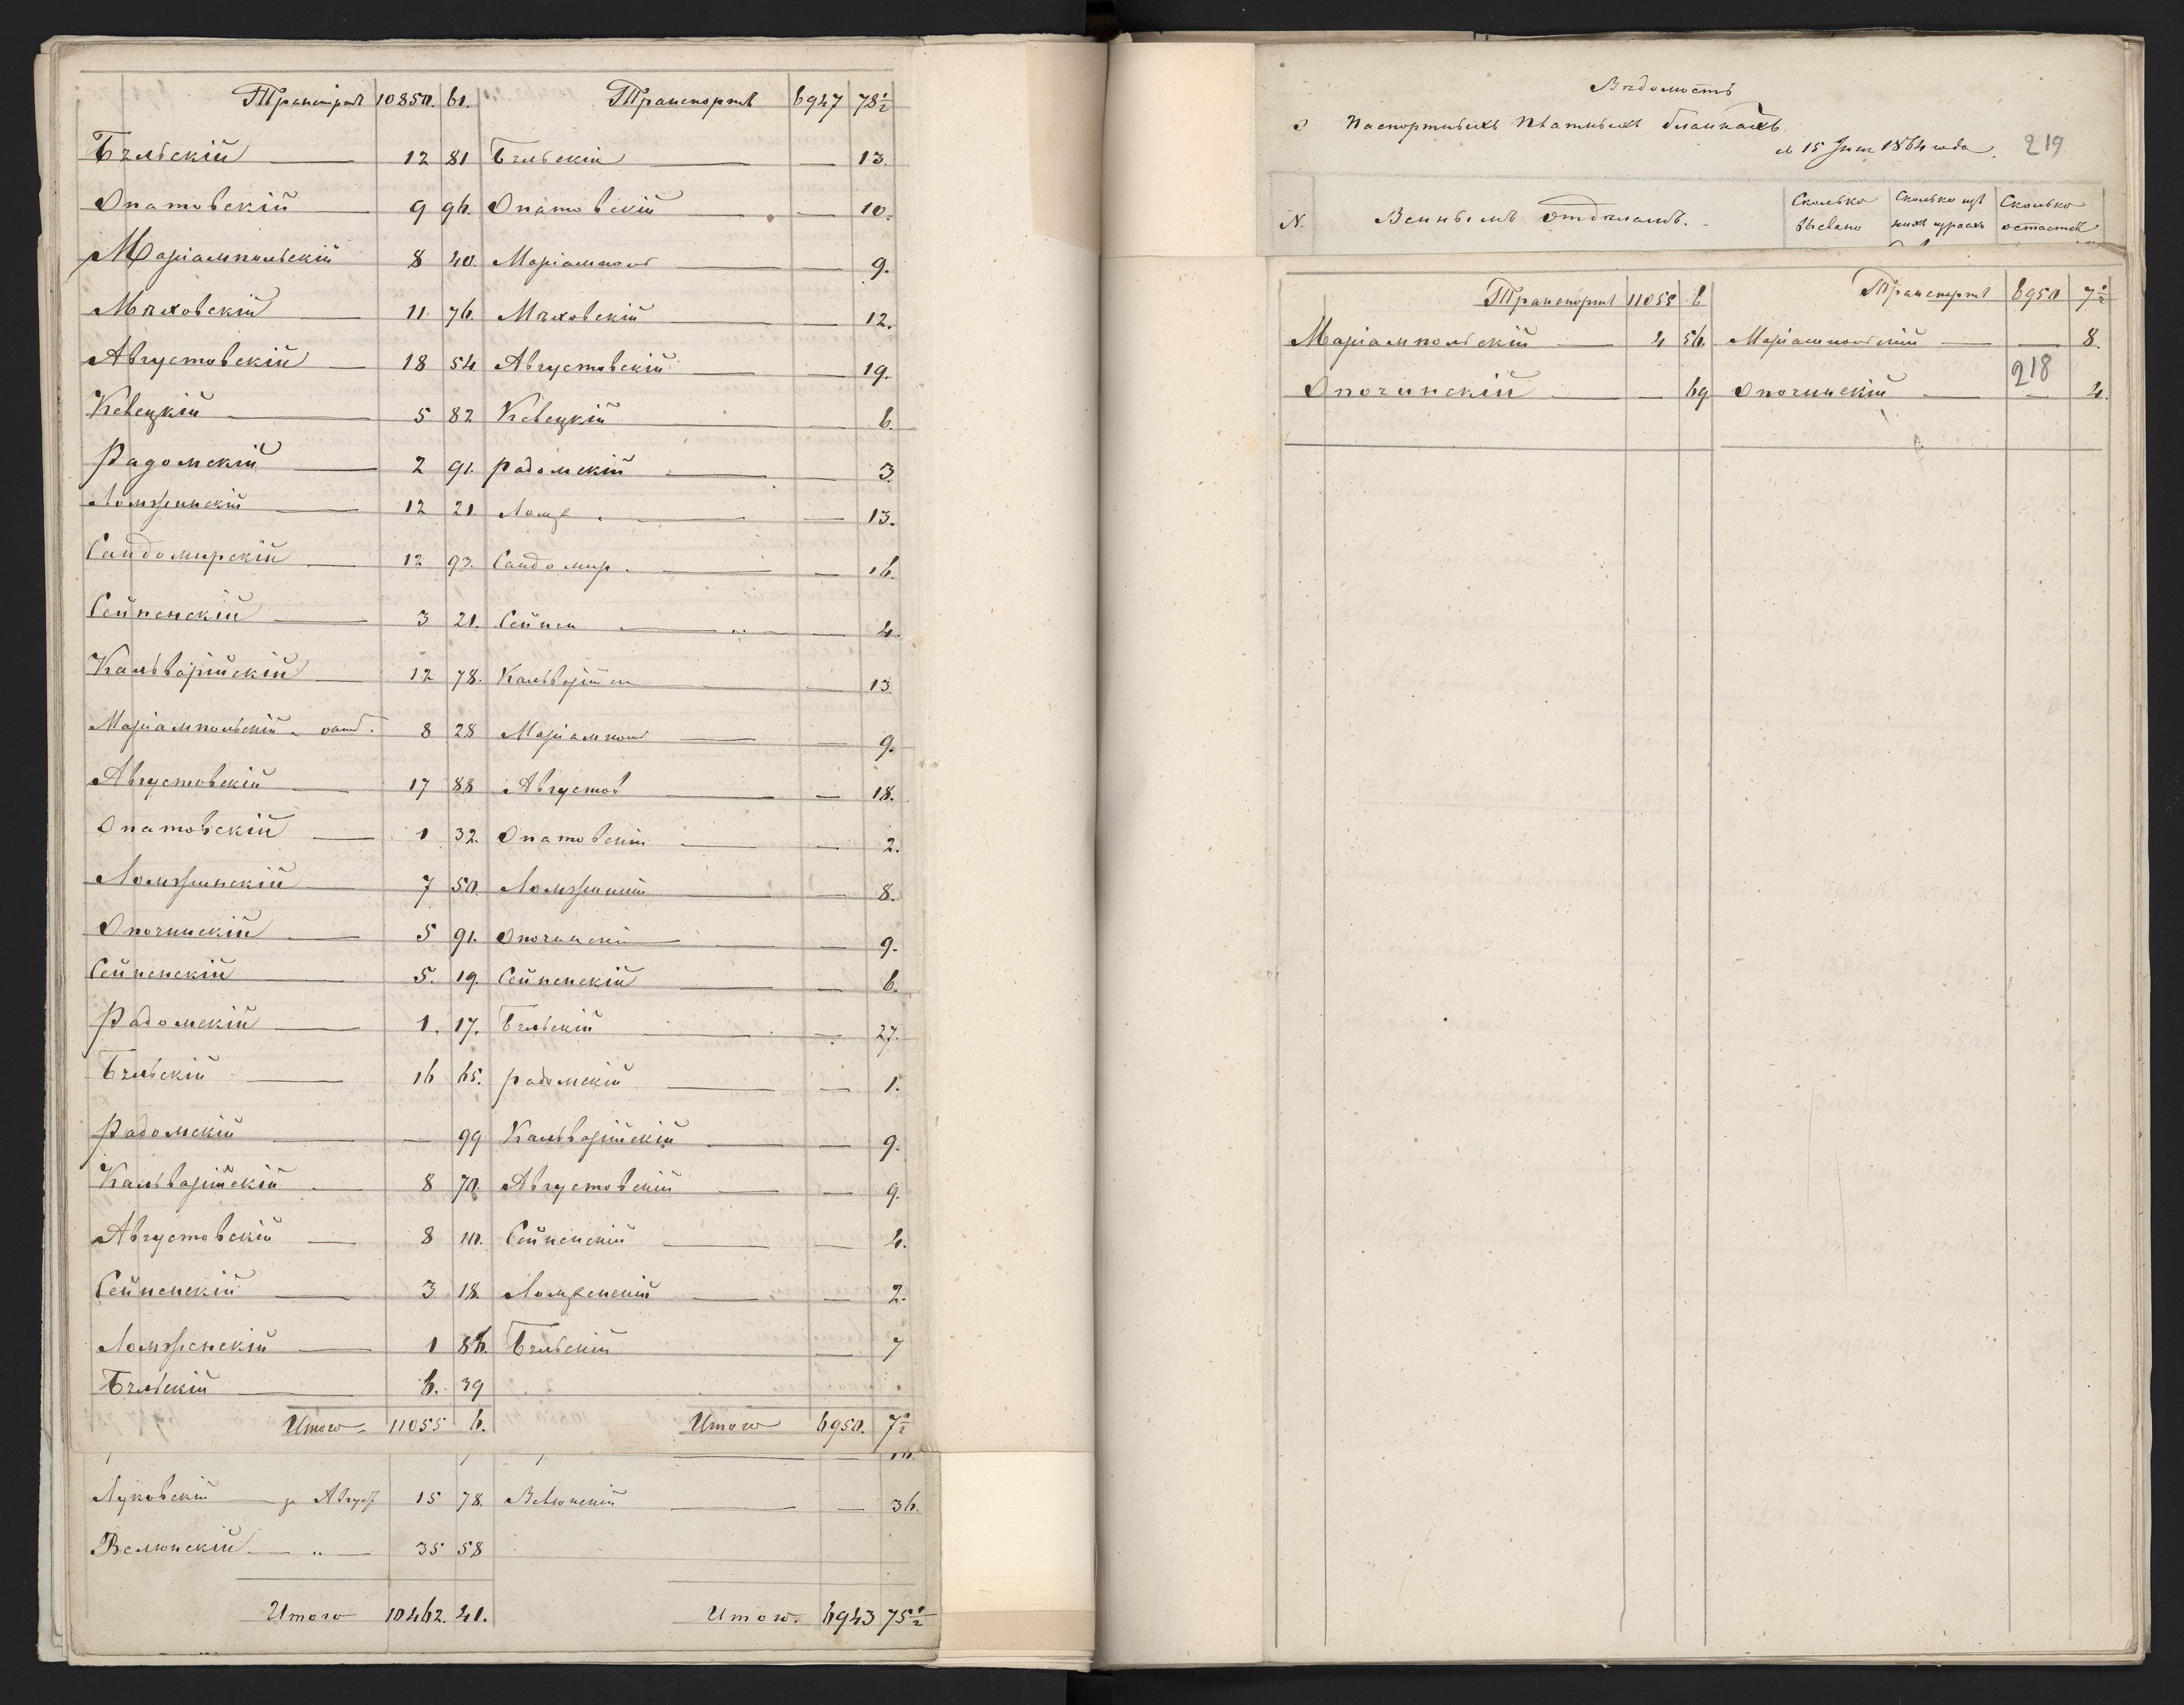 Транспортъ 10850. 61. Транспортъ 6947 78½
Бѣльскій — 12 81 Бѣльскій — — 13.
Опатовскій — 9 96. Опатовскій — — 10.
Маріампольскій 8 40. Маріампол — — 9.
Мѣховскій — 11 76. Мѣховскій — — 12.
Августовскій — 18 54 Августовскій — — 19.
Кѣлецкій — 5 82 Кѣлецкій — — 6.
Радомскій — 2 91. Радомскій — — 3.
Ломжинскій — 12 21 Ломж. — — 13.
Сандомирскій — 12 93. Сандомир. — — 16.
Сейненскій — 3 21. Сейнен — „ — — 4.
Кальварійскій — 12 78. Кальварійск — — 13
Маріампольскій 8 28 Маріампол — — 9.
Августовскій — 17 88 Августов — — 18.
Опатовскій — 1 32. Опатовскій — — 2.
Ломжинскій — 7 50. Ломжинскій — — 8.
Опочинскій — 5 91. Опочинскій — — 9.
Сейненскій — 5. 19. Сейненскій — — 6.
Радомскій — 1. 17. Бѣльскій — — 27.
Бѣльскій — 16 65. Радомскій — — 1.
Радомскій — — 99 Кальварійскій — — 9.
Кальварійскій — 8 70. Августовскій — — 9.
Августовскій — 8 10. Сейненскій — — 4.
Сейненскій — 3 18. Ломженскій — — 2.
Ломженскій — 1 86. Бѣльскій — 7
Бѣльскій — 6. 39
Итого 11055 6. Итого 6950. 7½
Луковскій — Август 15 78. Велюнскій — — 36.
Велюнскій — „ — 35 58
Итого 10462. 41. Итого. 6943 75½
Вѣдомость
о паспортныхъ бланкахъ
1864 года. 219
N. Военнымъ отдѣламъ. Сколько Сколько изъ Сколько
нихъ остается
Транспортъ 11055 6 Транспортъ 6950 7½
Маріампольскій — 4 56. Маріампольскій — — 8.
218
Опочинскій — — 69 Опочинскій — — 4.